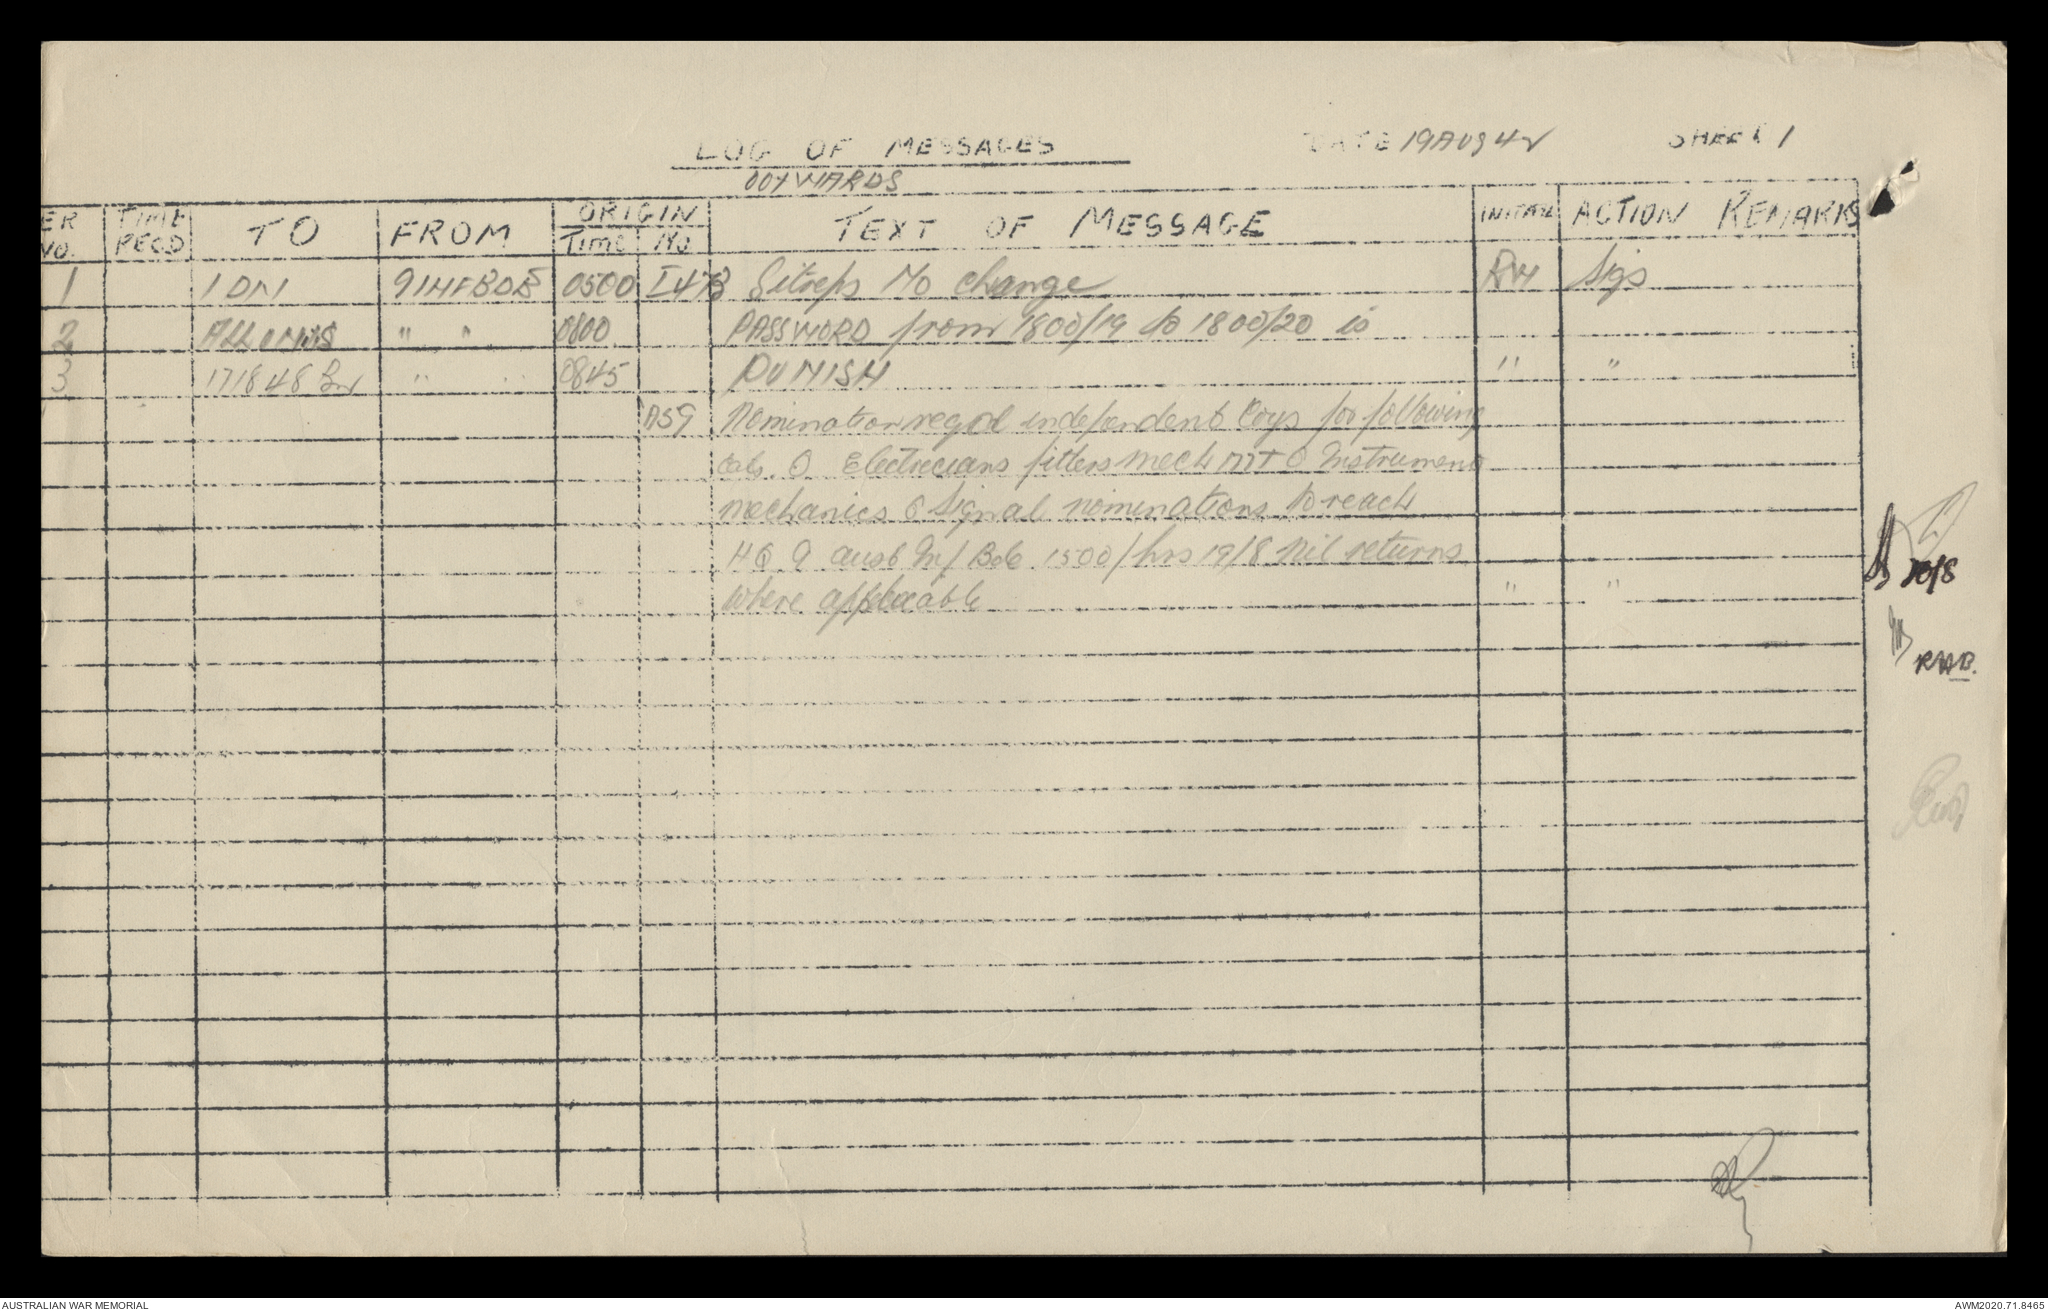 LOG OF MESSAGES DATE 19 AUG 42 SHEET 1
OUTWARDS
SER NO. TIME RECD TO FROM ORIGIN TIME NO TEXT OF MESSAGE INITIAL ACTION REMARKS
1 1 DIV 9 INF BDE 0500 I473 Sitreps No change RH Sigs
2 ALL UNITS " " 0800 PASSWORD from 1800/19 to 1800/20 is
3 17 18 48 Bn " " 0845 PUNISH " "
A59 Nomination reqd independent Coys for following
cats. O Electrecians fitters mech MT O Instrument
mechanics O Signal nominations to reach
HQ 9 Aust Inf Bde 1500/hrs 19/8 Nil returns
where applicable " "
RAB.
AUSTRALIAN WAR MEMORIAL AWM2020.71.8465